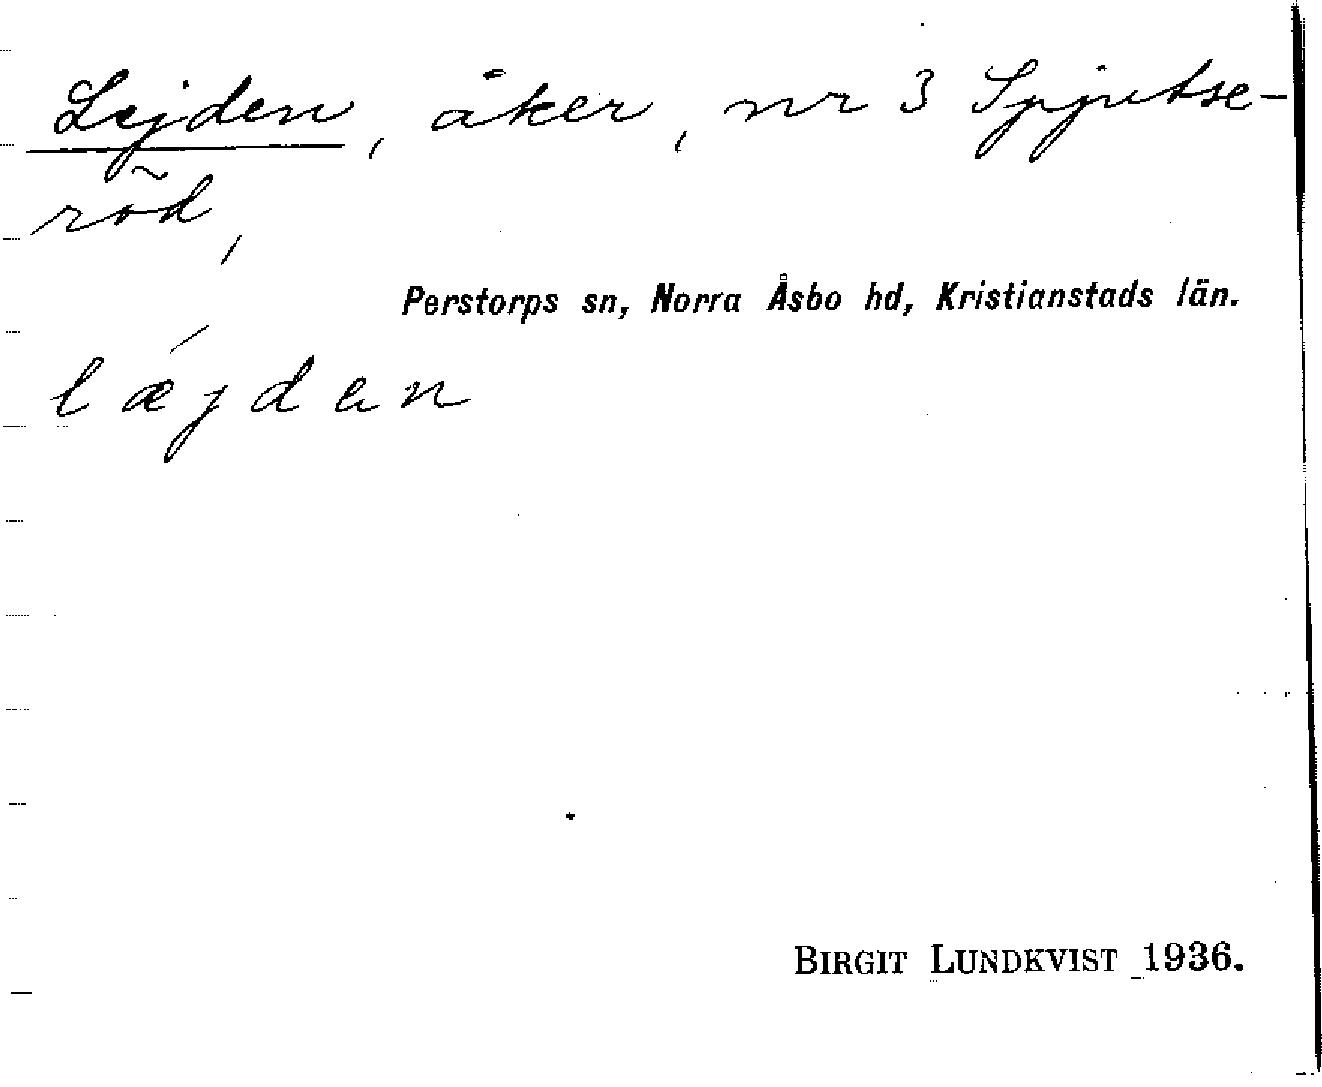 Lejden, åker, nr 3 Spjutse-
röd,
Perstorps sn, Norra Åsbo hd, Kristianstads län.
lǽjdən
BIRGIT LUNDKVIST 1936.